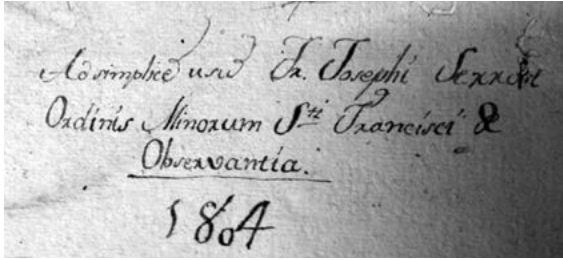 Ad simplicē usū Fr. Josephi Serrvi
Ordinis Minorum Sti Francisci &
Observantia.
1804